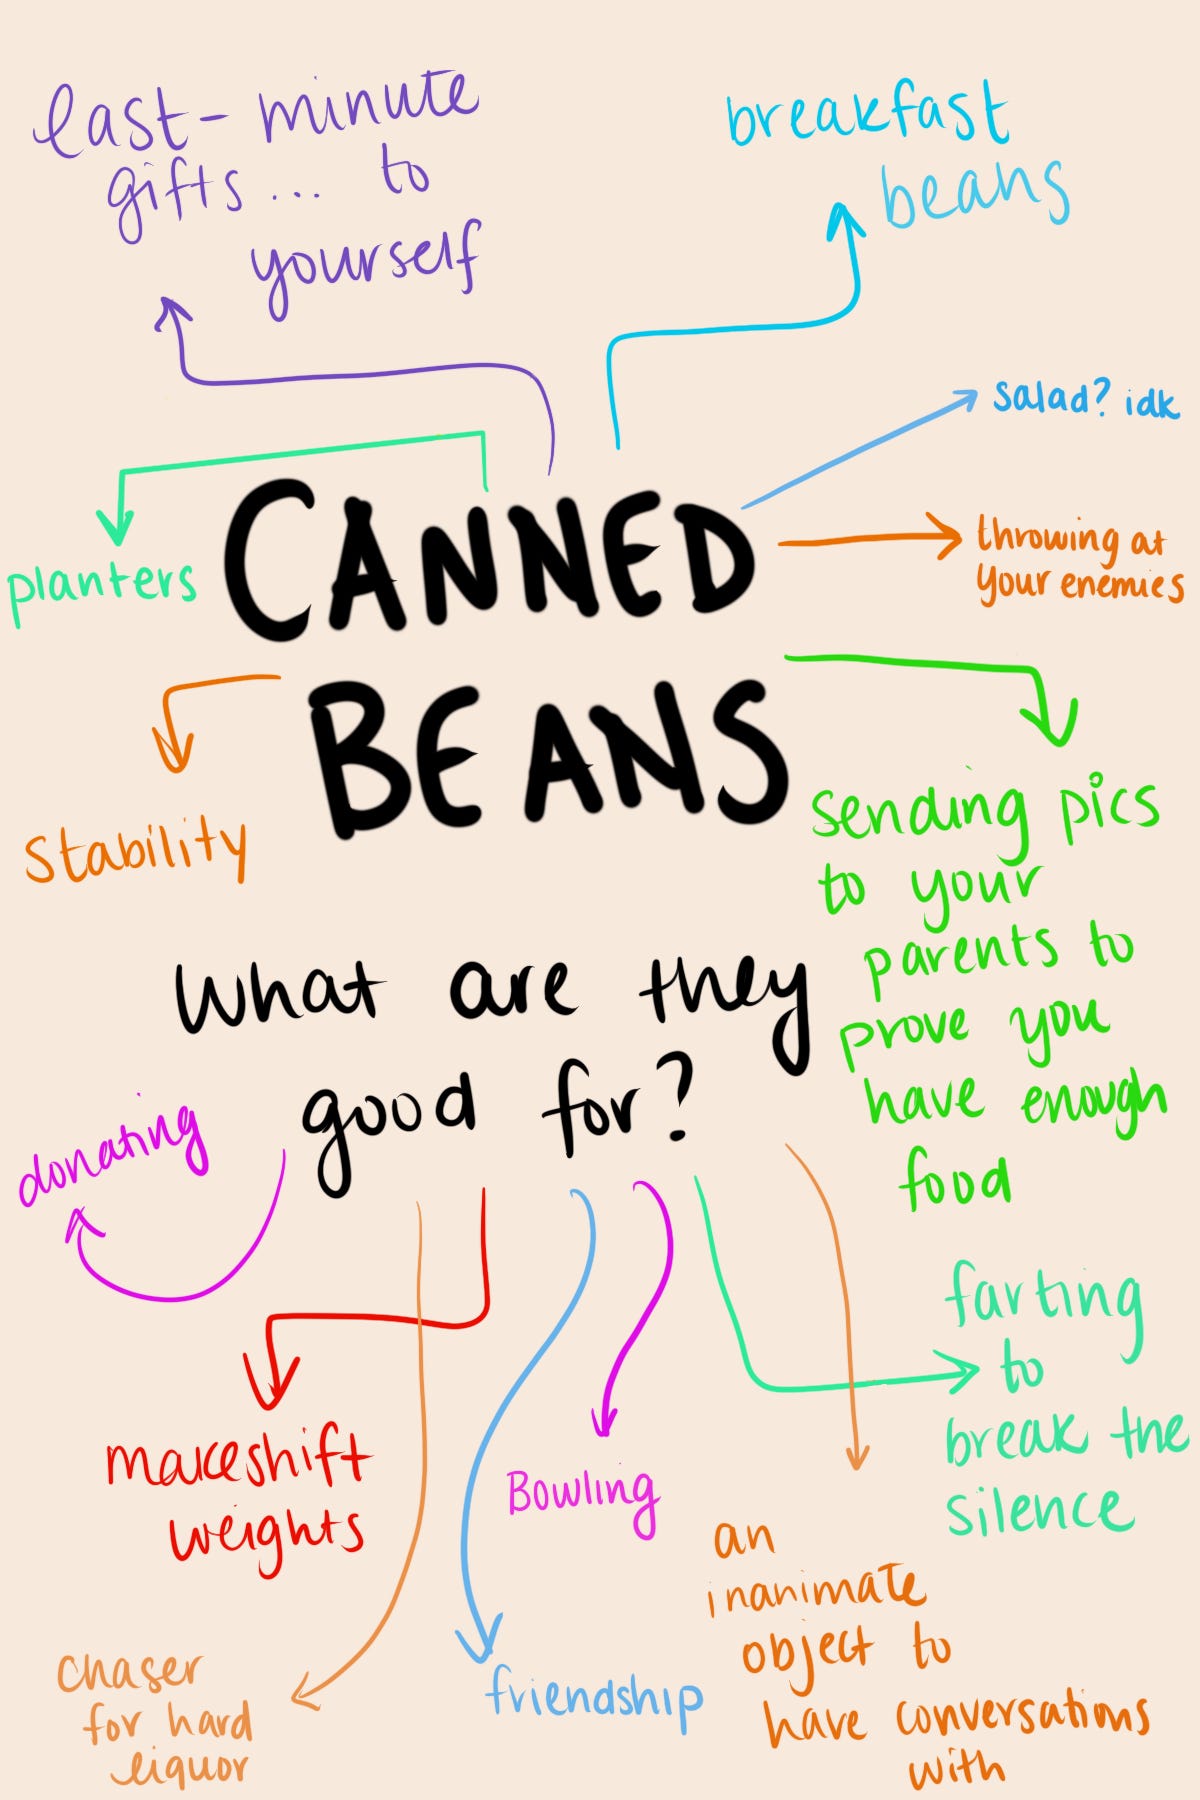 last-minute
gifts... to
yourself
breakfast
beans
salad? idk
planters
CANNED
BEANS
throwing at
your enemies
stability
sending pics
to your
parents to
prove you
have enough
food
What are they
good for?
donating
makeshift
weights
Bowling
farting
to
break the
silence
chaser
for hard
liquor
friendship
an
inanimate
object to
have conversations
with